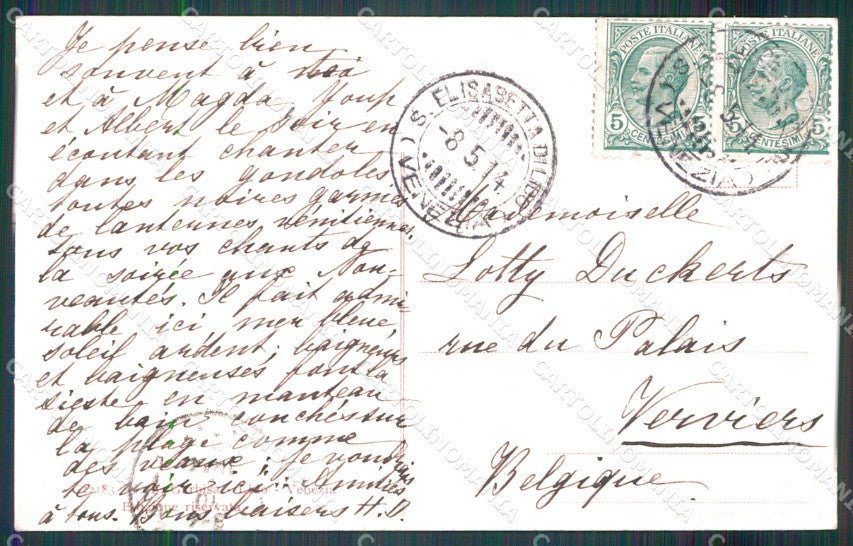 Je pense bien
souvent à toi
et à Magda Houp
et Albert le soir en
écoutant chanter
dans les gondoles
toutes noires garnies
de lanternes vénitiennes,
tous vos chants de
la soirée aux Nou-
veautés. Il fait admi-
rable ici, mer bleue,
soleil ardent; baigneurs
et baigneuses font la
sieste en manteau
de bain couchés sur
la plage comme
des veaux; je voudrais
te voir ici; amitiés
à tous. Bons baisers H.D.
Venezia
S. ELISABETTA DI LIDO
-8.5.14
(VENEZIA)
POSTE ITALIANE
5 CENTESIMI 5
POSTE ITALIANE
5 CENTESIMI 5
(VENEZIA)
Mademoiselle
Lotty Duckerts
rue du Palais
Verviers
Belgique
CARTOLINOMANIA